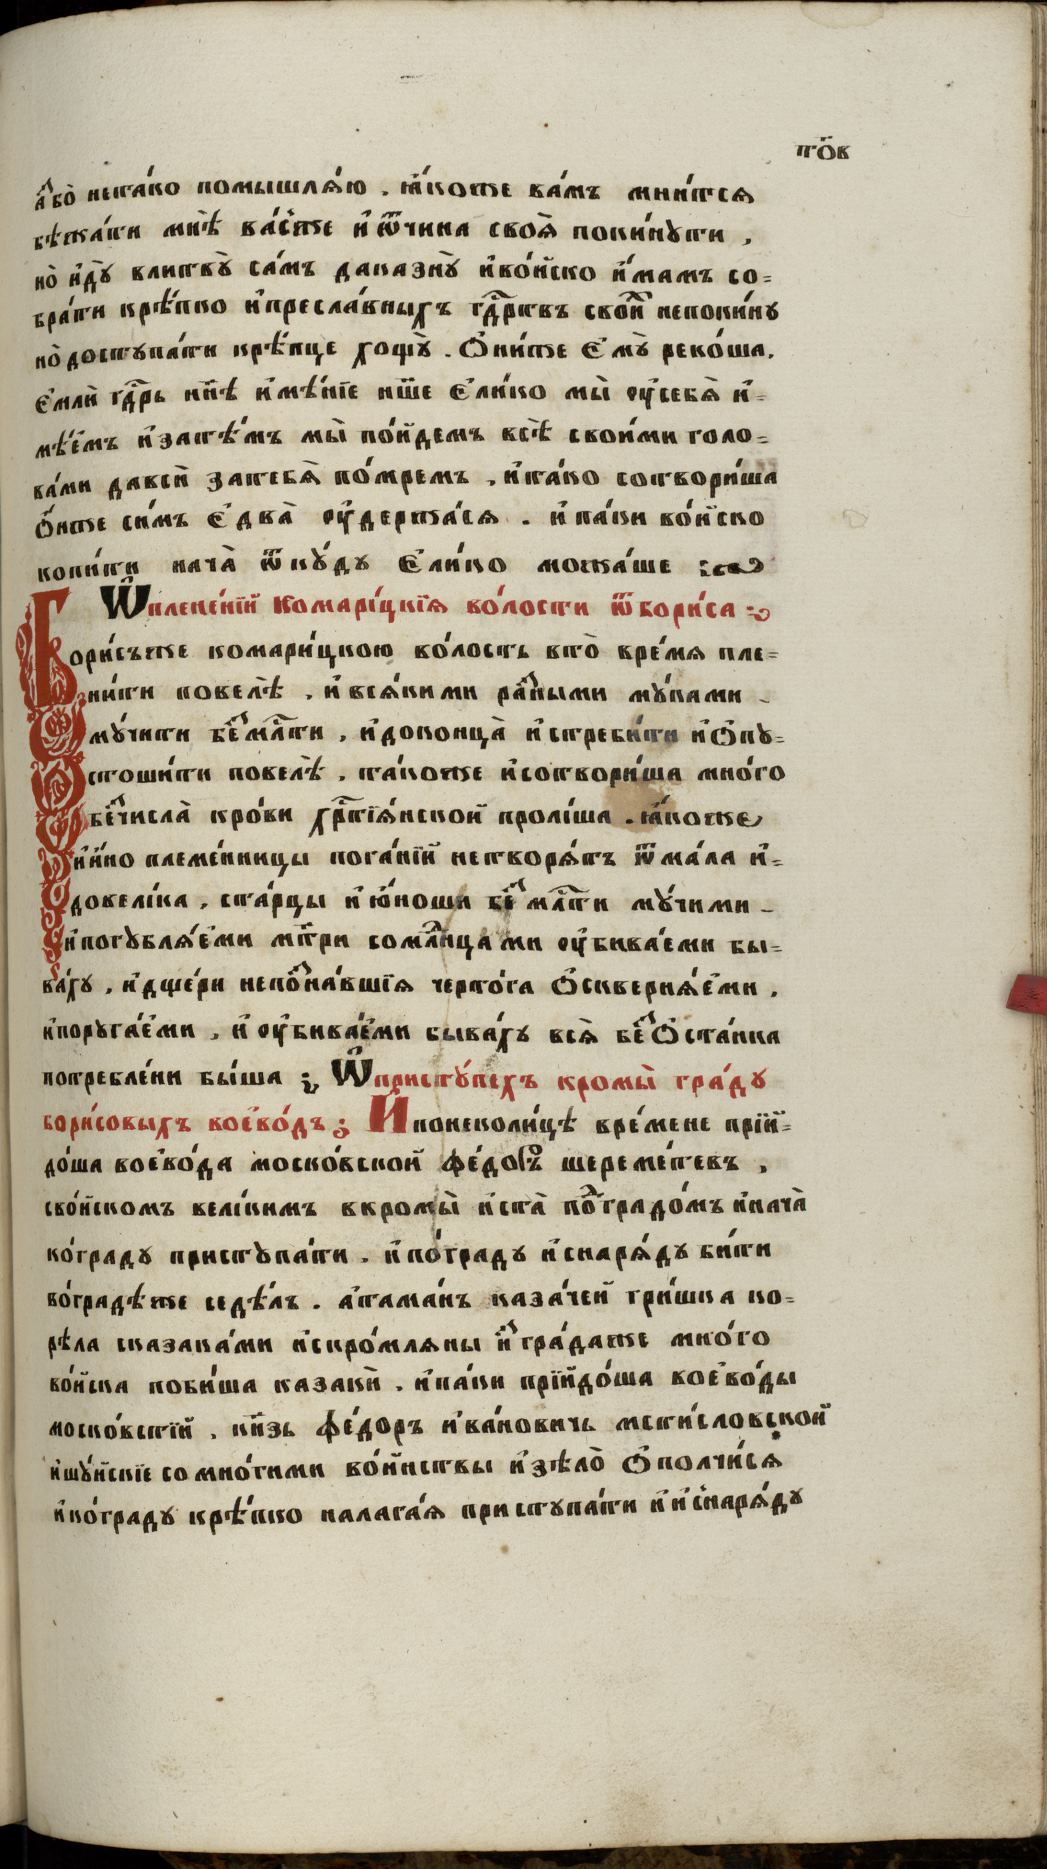 тѻ҃в
а҆́зъ бо̀ нета́ко помышлѧ́ю . ꙗ҆́коже ва́мъ мни́тсѧ
бѣжа́ти мнѣ̀ ва́съже и҆ ѿчина своѧ̀ поки́нꙋти ,
но̀ и҆дꙋ̀ влитвꙋ̀ са́мъ даказнꙋ̀ и҆во́йско и҆́мамъ со=
бра́ти крѣ́пко и҆пресла́вныхъ гдⷭ҇рствъ свои́хъ непоки́нꙋ
но̀ достꙋпа́ти крѣ́пце хощꙋ̀ . Ѻ҆ни́же є҆мꙋ̀ реко́ша .
є҆мли̑ гдⷭ҇рь нн҃ѣ и҆мѣ́нїе на́ше є҆ли́ко мы̀ ᲂу҆себѧ̀ и҆=
мѣ́емъ и҆затѣ́мъ мы̀ по́йдемъ всѣ̀ свои́ми голо=
ва́ми давсѝ затебѧ̀ по́мремъ , и҆та́ко сотвори́ша
ѻ҆́нъже си́мъ є҆два̀ ᲂу҆держа́сѧ . и҆ па́ки во́йско
копи́ти нача̀ ѿкꙋ́дꙋ є҆ли́ко можа́ше :~
Ѡ҆пленє́нїй Комари́цкїѧ во́лости ѿбори́са :~
Бори́съже комари́цкою во́лость вто̀ вре́мѧ пле=
ни́ти повелѣ̀ , и҆ всѧ́кими ра́зными мꙋ́ками -
мꙋ́чити безъ млⷭ҇ти , и҆доконца̀ и҆стреби́ти и҆ѻ҆пꙋ=
стоши́ти повелѣ̀ , та́коже и҆сотвори́ша мно́го
безчисла̀ кро́ви хрⷭ҇тїѧ́нской пролі́ша . ꙗ҆́коже
и҆и҆но племе́нницы пога́нїй нетворѧ́тъ ѿма́ла и҆=
довелі́ка , ста́рцы и҆ ю҆́ноши безъ млⷭ҇ти мꙋ́чими -
и҆погꙋблѧ́еми мт҃ри сомладе́нцами ᲂу҆бива́еми бы=
ва́хꙋ , и҆дще́ри непозна́вшїѧ черто́га ѻ҆сквернѧ́еми .
и҆порꙋга́еми , и҆ ᲂу҆бива́еми быва́хꙋ всѧ̀ безъ ѻ҆ста́нка
потребле́ни бы́ша ; Ѡ҆пристꙋ́пехъ кромы̀ гра́дꙋ
бори́совыхъ воево́дъ ; И҆понеколи́цѣ вре́мене прїй=
до́ша воево́да моско́вской фе́доръ шереме́тевъ ,
сво́йскомъ вели́кимъ вкромы̀ и҆ста̀ подъградо́мъ и҆нача̀
ко́градꙋ пристꙋпа́ти . и҆по́градꙋ и҆снарѧ́дꙋ би́ти
во́градѣже седѣ́лъ . а҆тама́нъ каза́чей гри́шка ко=
рѣла сказака́ми и҆скро́млѧны и҆зъ гра́даже мно́го
во́йска поби́ша казакѝ . и҆па́ки прїйдо́ша воево́ды
моско́встїй , кн҃зь фе́доръ и҆ва́новичь мсти́словской
и҆шꙋ́йскїе со мно́гими во́йнствы и҆зѣло̀ ѻ҆полчи́сѧ
и҆ко́градꙋ крѣ́пко налага́ѧ пристꙋпа́ти и҆ и҆снарѧ́дꙋ